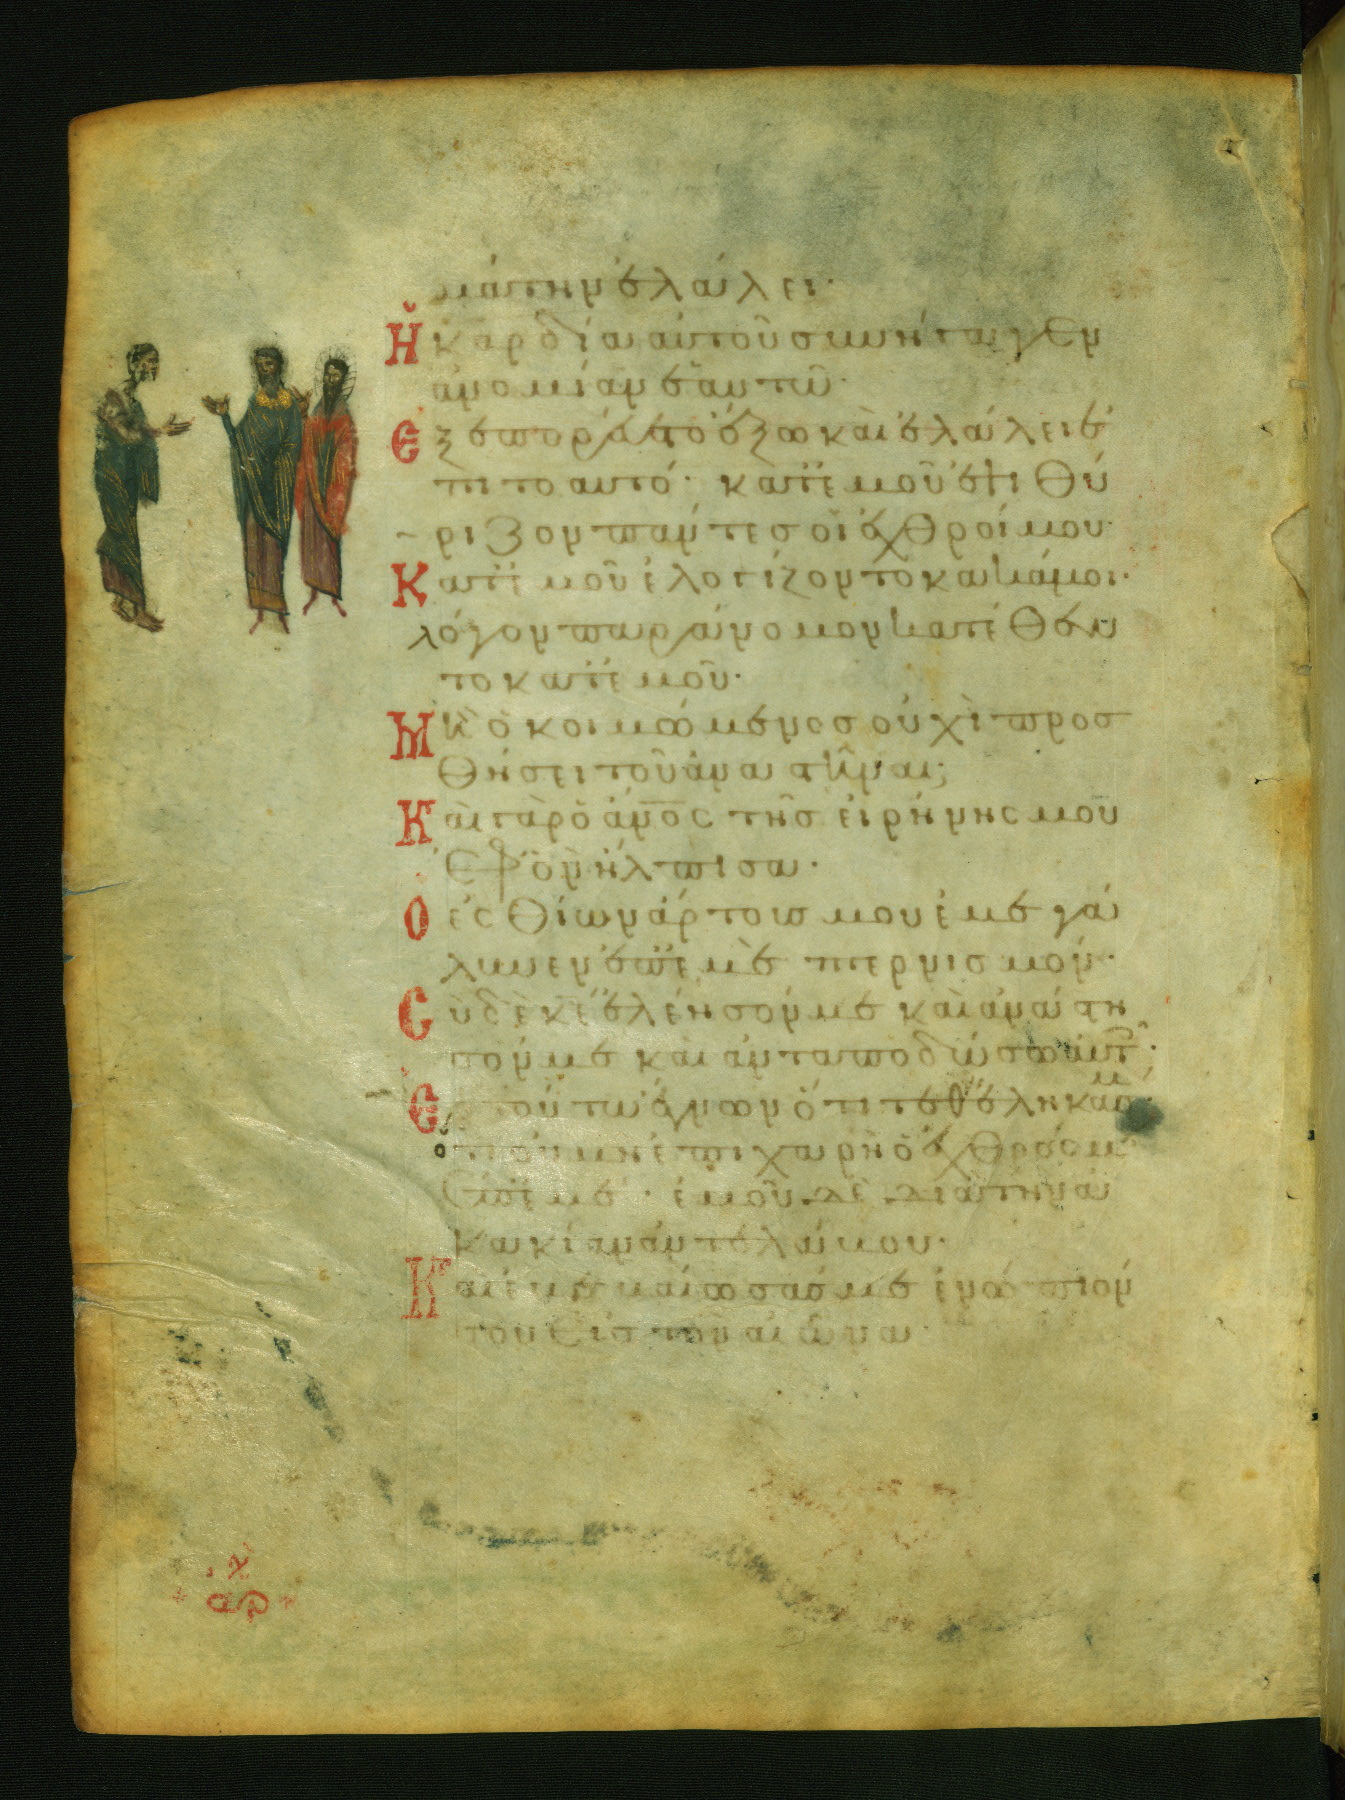 μάτην ἐλάλει·
Ἡ καρδία αὐτοῦ συνήγαγεν
ἀνομίαν ἑαυτῶ·
Ἐξεπορεύετο ἔξω καὶ ἐλάλει ἐ
πιτοαυτό· κατ' ἐμοῦ ἐψιθύ
ριζον πάντες οἱ ἐχθροί μου·
Κατ' ἐμοῦ ἐλογίζοντο κακά μοι·
λόγον παράνομον κατέθεν
το κατ' ἐμοῦ·
Μὴ ὁ κοιμώμενος οὐχὶ προσ
θήσει τοῦ ἀναστῆναι;
Καὶ γὰρ ὁ ἄνος τῆς εἰρήνης μου
ἐφ' ὃν ἤλπισα·
Ὁ ἐσθίων ἄρτους μου ἐμεγά
λυνεν ἐπ' ἐμὲ πτερνισμόν·
Σὺ δὲ κὲ ἐλέησόν με καὶ ἀνάστη
σόν με καὶ ἀνταποδώσω αὐτ·
Ἐν τούτω ἔγνων ὅτι τεθέληκάς με
ὅτι οὐ μὴ ἐπιχαρῆ ὁ ἐχθρός μου
ἐπ' ἐμέ· ἐμοῦ δὲ διὰ τὴν ἀ
κακίαν ἀντελάβου·
Καὶ ἐβεβαίωσάς με ἐνώπιόν
σου εἰς τὸν αἰῶνα·